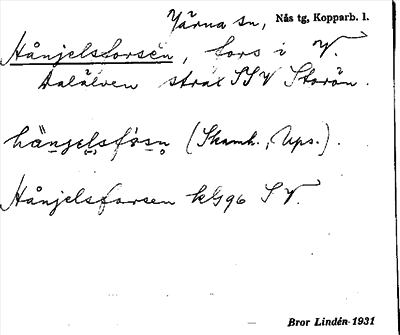 Järna sn, Nås tg, Kopparb. l.
Hånjelsforsen, fors i V.
Dalälven strax SSV Storön.
hänjelsfòsn (Skamh., Ups.).
Hånjelsforsen kbl 96 SV.
Bror Lindén 1931